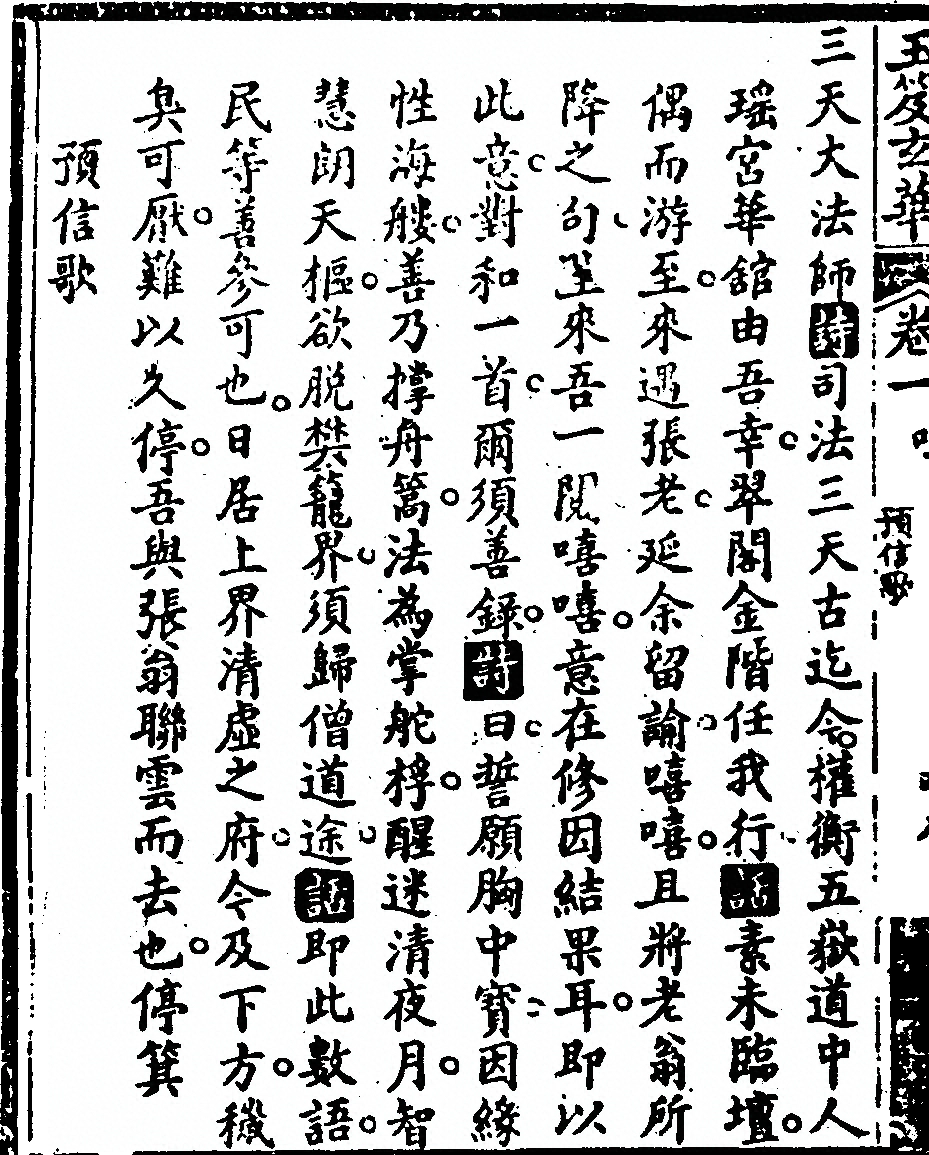 玉笈玄華 卷一
預信歌
三天大法師詩司法三天古迄今權衡五嶽道中人
瑶宮華舘由吾幸翠閣金階任我行話素未臨壇
偶而游至來遇張老延余留諭嘻嘻且將老翁所
降之句呈來吾一閱嘻嘻意在修因結果耳即以
此意對和一首爾須善錄詩曰誓願胸中寶因緣
性海艘善乃撑舟篙法為掌舵桴醒迷清夜月智
慧朗天樞欲脱樊籠界須歸僧道途話即此數語
民等善參可也日居上界清虛之府今及下方穢
臭可厭難以久停吾與張翁聯雲而去也停箕
預信歌